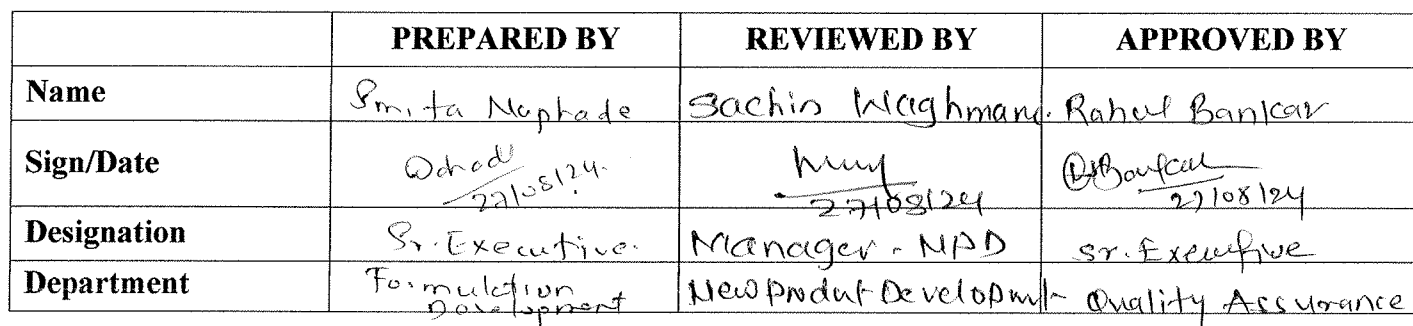 PREPARED BY REVIEWED BY APPROVED BY
Name Smita Naphade Sachin Waghmare. Rahul Bankar
Sign/Date 27/08/24. 27/08/24 27/08/24
Designation Sr. Executive. Manager - NPD Sr. Executive
Department Formulation Development New Produt Development Quality Assurance